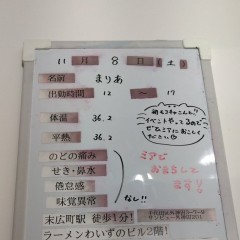 11月 8日(土)
名前 まりあ
出勤時間 12 ー 17
体温 36.2
平熱 36.2
のどの痛み
せき・鼻水
倦怠感
味覚異常
なし!!
イベントやってるので
ぜひミアにおこして
ください
ミアで
おまちして
ます!!
末広町駅 徒歩1分!
ラーメンわいずのビル2階!